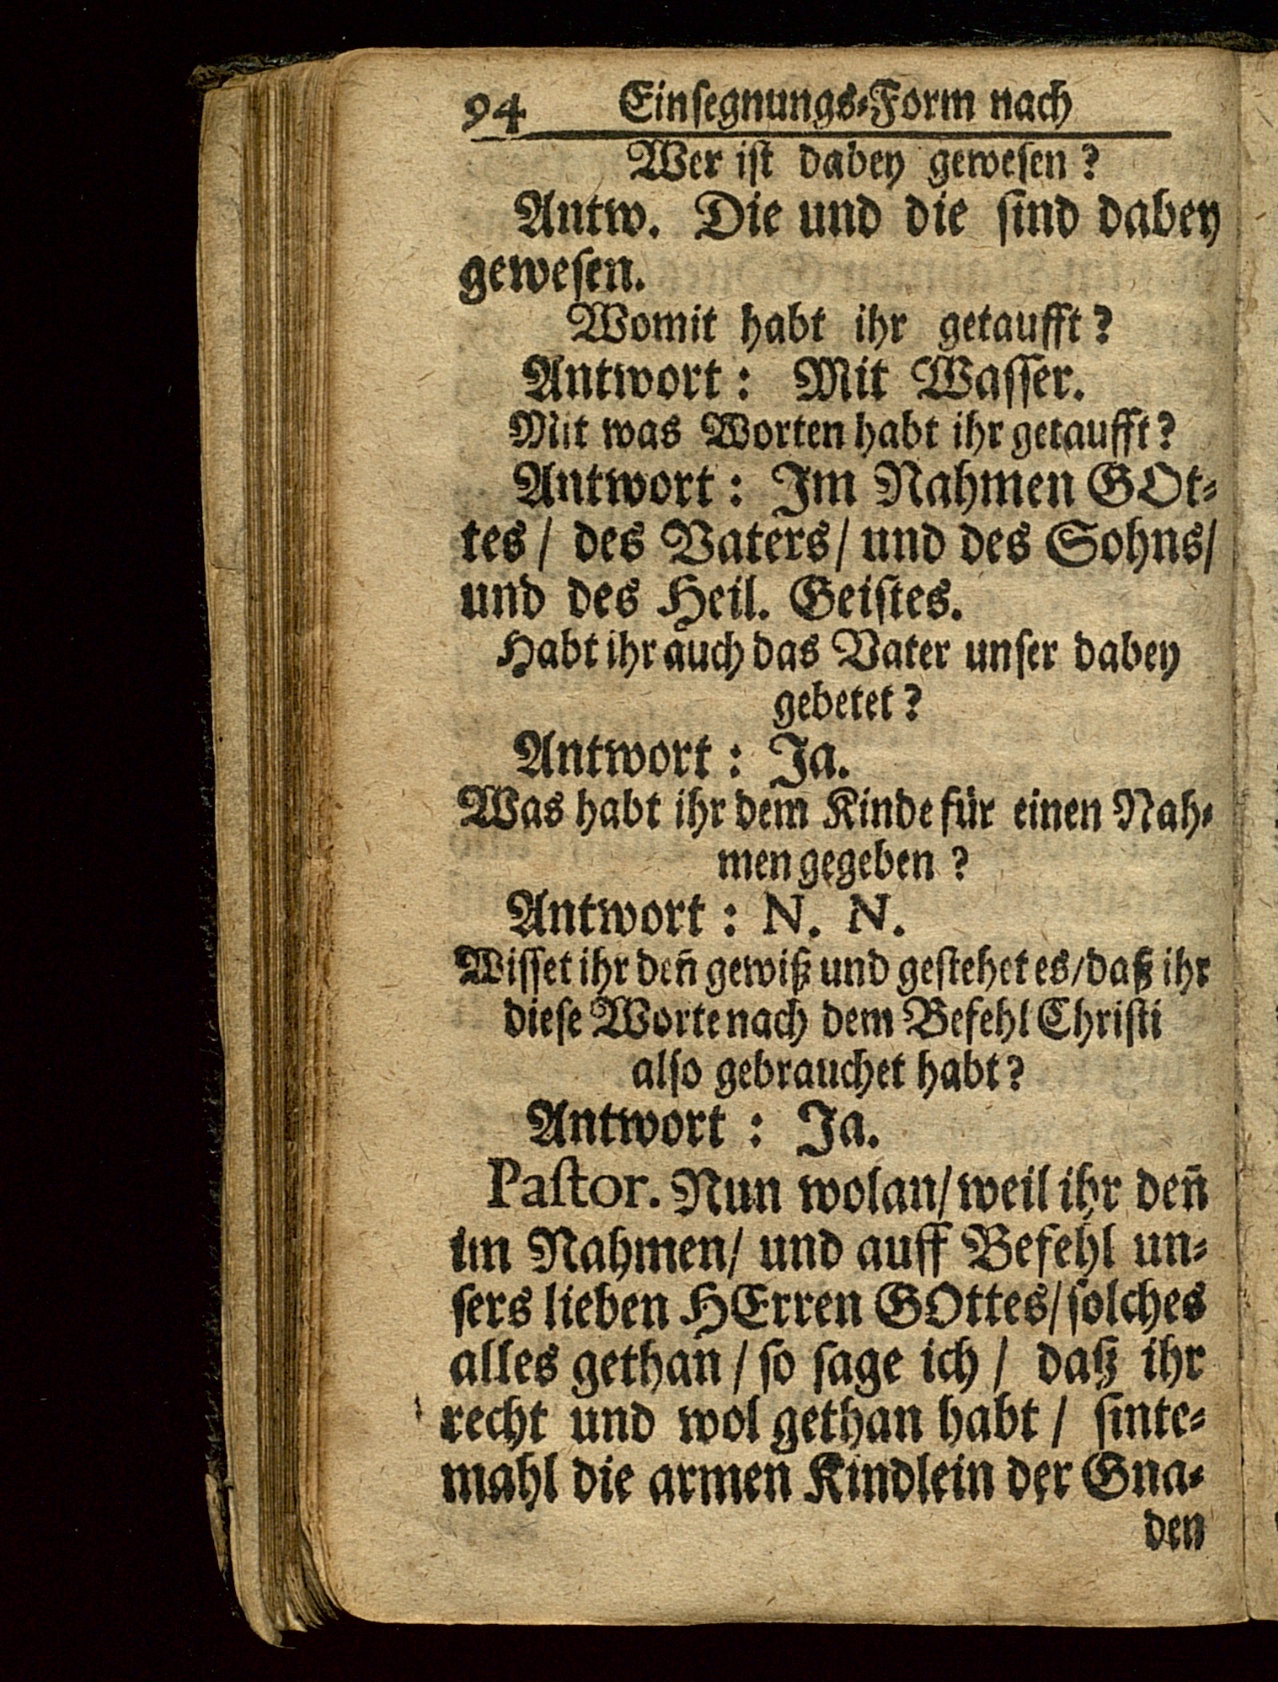 94 Einſegnungs-Form nach
Wer iſt dabey geweſen?
Antw. Die und die ſind dabey
geweſen.
Womit habt ihr getaufft?
Antwort: Mit Waſſer.
Mit was Worten habt ihr getaufft?
Antwort: Im Nahmen GOt-
tes/ des Vaters/ und des Sohns/
und des Heil. Geiſtes.
Habt ihr auch das Vater unſer dabey
gebetet?
Antwort: Ja.
Was habt ihr dem Kinde für einen Nah-
men gegeben?
Antwort: N. N.
Wiſſet ihr deñ gewiß und geſtehet es/daß ihr
dieſe Worte nach dem Befehl Chriſti
alſo gebrauchet habt?
Antwort: Ja.
Paſtor. Nun wolan/ weil ihr deñ
im Nahmen/ und auff Befehl un-
ſers lieben HErren GOttes/ ſolches
alles gethan/ ſo ſage ich/ daß ihr
recht und wol gethan habt/ ſinte-
mahl die armen Kindlein der Gna-
den